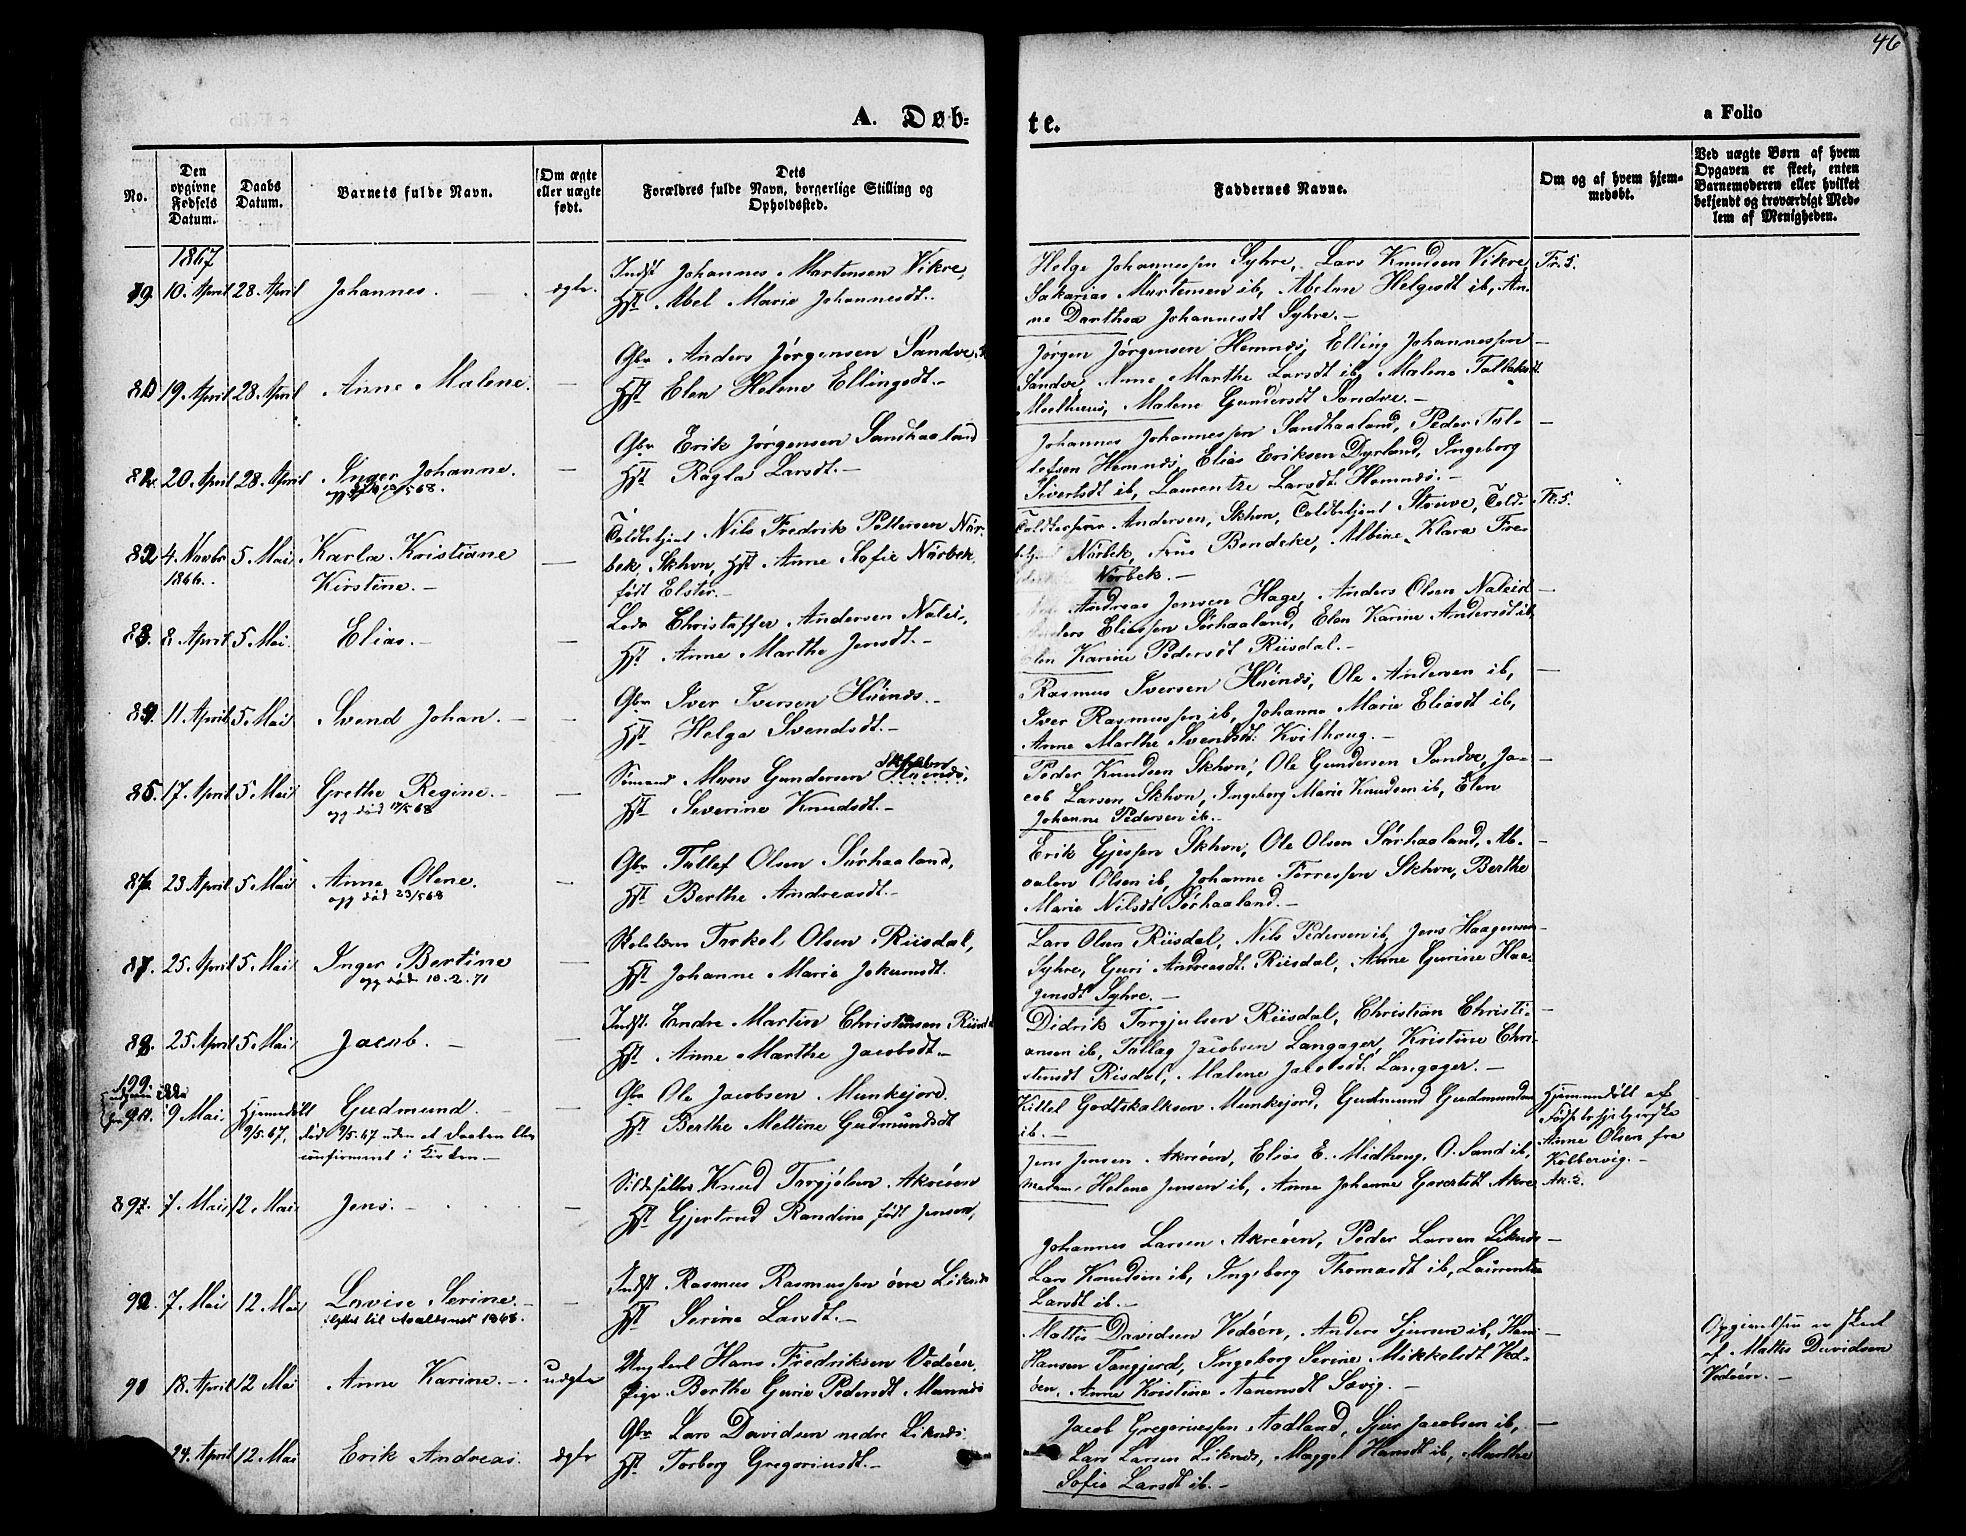 46
A. Døb-
te.
a Folio
No.
Den opgivne Fødsels Datum.
Daabs Datum.
Barnets fulde Navn.
Om ægte eller uægte født.
Dets Forældres fulde Navn, borgerlige Stilling og Opholdssted.
Faddernes Navne.
Om og af hvem hjemmedøbt.
Ved uægte Børn af hvem Opgaven er skeet, enten Barnemoderen eller hvilket bekjendt og troværdigt Medlem af Menigheden.
1867
79. 10. April 28. April Johannes. ægte.
Indst Johannes Martensen Vikre,
Hst. Abel Marie Johannesdt.
Helge Johannessen Syhre, Lars Knudsen Vikre Fr. 5.
Sakarias Martensen ib, Abelon Helgesdt ib, An-
ne Dorthea Johannesdt Syhre.-
80 19. April 28. April Anne Malene. —
Gbr Anders Jørgensen Sandve,
Hst. Elen Helene Ellingsdt.-
Jørgen Jørgensen Hemnes, Elling Johannessen —
Sandve, Anne Marthe Larsdt ib, Malene
Malene Gundersdt Sandve.-
20. April 28. April Inger Johanne. —
Gbr Erik Jørgensen Sandhaaland
Hst. Ragla Larsdt.-
Johannes Johannessen Sandhaaland, Peder Tol- —
lefsen Hemnes, Elias Eriksen Dyrland, Ingeborg
Sivertsdt ib, Laurentze Larsdt Hemnes.-
82 4. Novbr 5 Mai Karla Kristiane —
1866. Kirstine.-
Toldbetjent Nils Fredrik Pettersen Nør-
bek, Skhvn, Hst Anne Sofie Nørbek,
født Elster.-
Andersen, Skhvn, Toldbetjent Struve, Told- Fr. 5.
Nørbek, Frue Bendeke, Albine Klara Fre-
Nørbek.-
83. 8. April 5 Mai. Elias.-
Lods Christaffer Andersen
Hst Anne Marthe Jensdt.-
Andreas Jensen Hage, Anders Olsen —
Anders Eliassen Sørhaaland, Elen Karine Andersdt ib,
Elen Karine Pedersdt Riisdal.-
84. 11 April 5 Mai Svend Johan.- —
Gbr Iver Iversen Høines.-
Hst. Helga Svendsdt.-
Rasmus Iversen Høines, Ole Andersen ib, —
Iver Rasmussen ib, Johanna Marie Eliasdt ib,
Anne Marthe Svendsdt. Kvilhoug.-
85. 17. April 5 Mai Grethe Regine.- —
og død 17/5 68
Sømand Mons Gundersen Høines,
Hst. Severine Knudsdt.-
Peder Knudsen Skhvn, Ole Gundersen Sandve, Ja- —
cob Larsen Skhvn, Ingeborg Marie Knudsen ib, Elen
Johanne Pedersen ib.-
23 April 5 Mai Anne Olene. —
og død 23/5 68
Gbr Tollef Olsen Sørhaaland,
Hst. Berthe Andreasdt.-
Erik Gjessen Skhvn, Ole Olsen Sørhaaland, Ab- —
salon Olsen ib, Johanne Torressen Skhvn, Berthe
Marie Nilsdt Sørhaaland.-
87. 25. April 5 Mai Inger Bertine —
og død 10.2.71
Skolelærer Torkel Olsen Riisdal,
Hst. Johanne Marie
Lars Olsen Riisdal, Nils Pedersen ib, Jens Haagensen —
Syhre, Guri Andreasdt. Riisdal, Anne Gurine Haa-
gensdt Syhre.-
88. 25 April 5 Mai Jacob.- —
Indst. Endre Martin Christensen
Hst. Anne Marthe Jacobsdt.-
Didrik Torgjulsen Riisdal, Christian Christi- —
ansen ib, Tollag Jacobsen Langager, Kristine Chri-
stensdt Risdal, Malene Jacobsdt. Langager.-
9 Mai. Hjemmedøbt Gudmund.- —
9/5.67, død 9/5.67 uden at Daaben blev
confirmeret i Kirken.-
Gbr Ole Jacobsen Munkejord,
Hst Berthe Meltine Gudmundsdt
Kittel Godtskalksen Munkejord, Gudmund Gudmundsen
ib.-
Hjemmedøbt af
Anne Olsen fra
Kolbervig.-
7 Mai 12 Mai Jens.- —
Knud Torgjelsen Akreøen
Hst Gjertrud Randine født Jensen,
Jens Jensen Akreøen, Elias E. Midhoug, O. Sand ib,
Madam Helene Jensen ib, Anne Johanne Akre Ak. 2.
7 Mai 12 Mai Lovise Serine.- —
1868.
Indst. Rasmus Rasmussen øvre Liknes
Hst. Serine Larsdt.-
Johannes Larsen Akreøen, Peder Larsen Liknes —
Lars Knudsen ib, Ingeborg Thomasdt ib, Laurentse
Larsdt ib.-
18. April 12 Mai Anne Karine.- uægte
Ungkarl Hans Fredriksen Vedøen,
Pige Berthe Gurie Pedersdt Mannes
Mattis Davidsen Vedøen, Anders Sjursen ib, Hans —
Hansen Tangjerd, Ingeborg Serine Mikkelsdt Ved-
øen, Anne Kristine Aanensdt Sævig.-
Opgivelsen er skeet
af Mattis Davidsen
Vedøen.-
24. April 12 Mai Erik Andreas. ægte
Gbr Lars Davidsen nedre Liknes
Hst. Torborg Gregoriusdt.-
Jacob Gregoriussen Aadland, Sjur Jacobsen ib, —
Lars Larsen Liknes, Magge Hansdt ib, Marthe
Sofie Larsdt ib.-